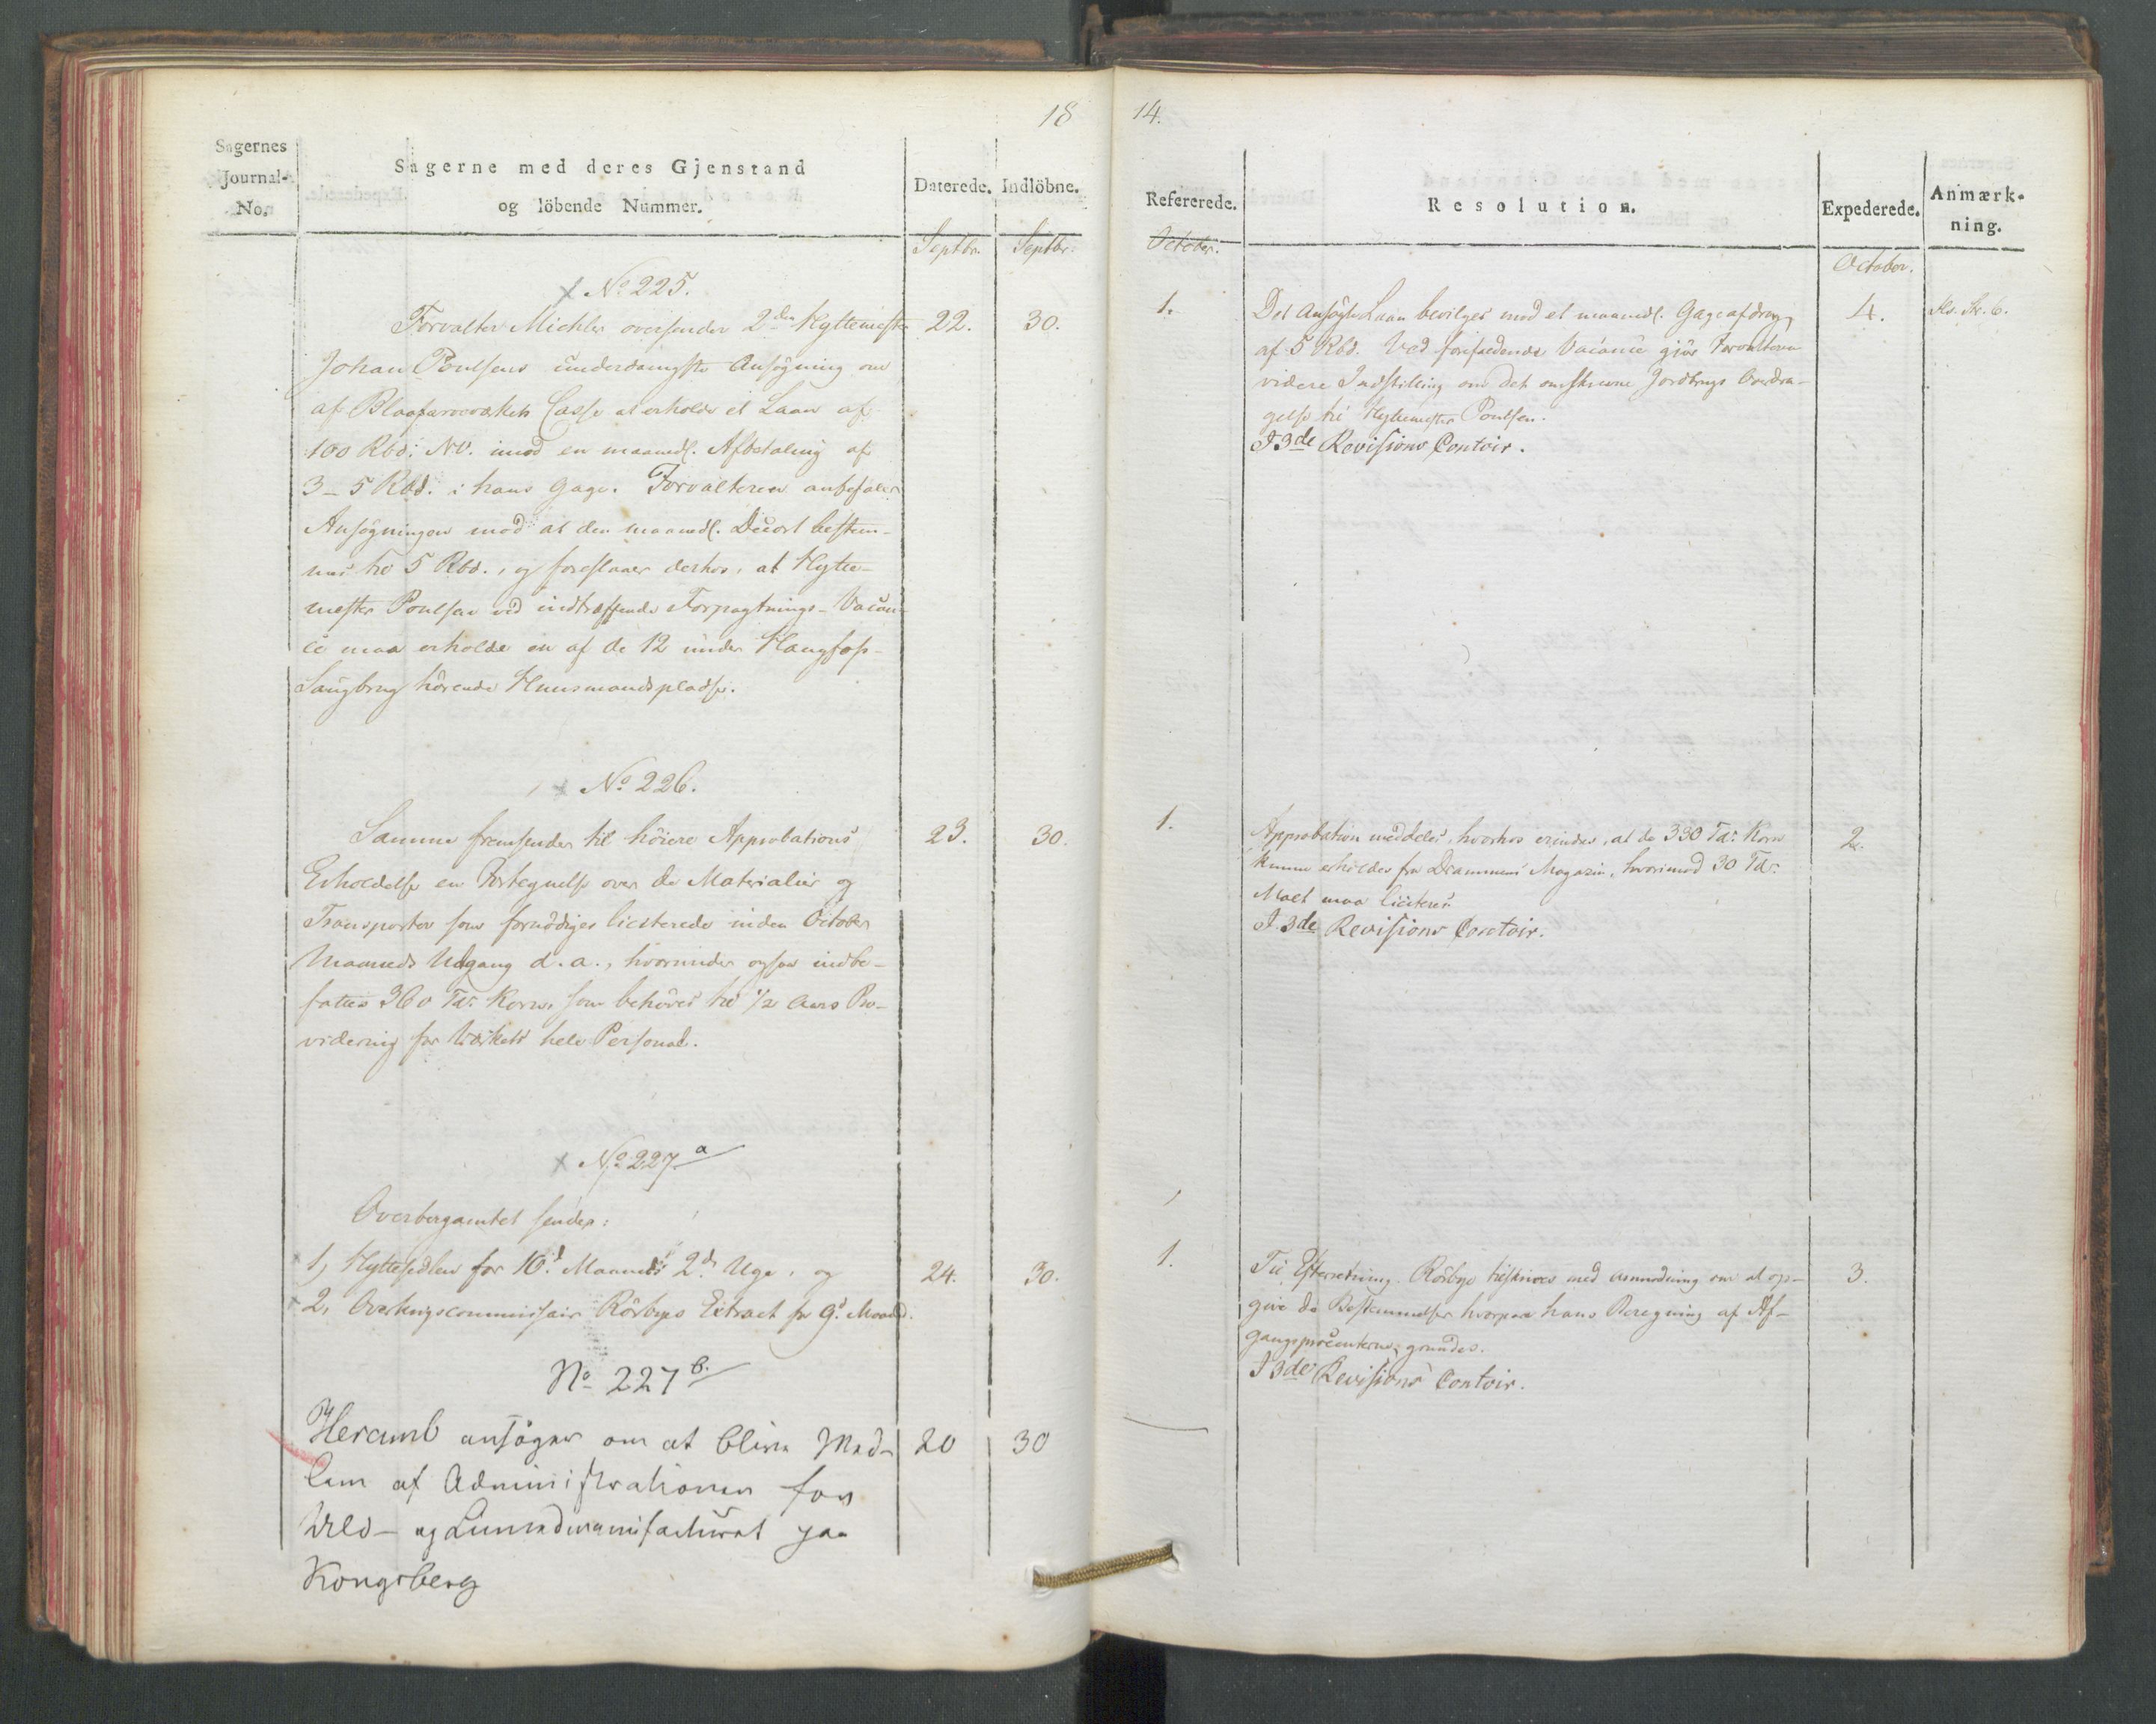 18
Sagernes
Journal-
No.
Sagerne med deres Gjenstand
og löbende Nummer.
Daterede.
Indlöbne.
Septbr.
Septbr.
No 225.
Forvalter Michler oversender 2den Hyttemester
22.
30.
Johan Poulsens underdanigste Ansøgning om
af Blaafarveværkets Casse at erholde et Laan af
100 Rbd: NV. imod en maanedl. Afbetaling af
3-5 Rbd. i hans Gage. Forvalteren anbefaler
Ansøgningen mod at den maanedl. Decort bestem-
mes til 5 Rbd., og foreslaaer derhos, at Hytte-
mester Poulsen ved indtræffende Forpagtnings-Vacan-
ce maa erholde en af de 12 under Haugfoss
Saugbrug hørende Huusmandspladse.
No 226.
Samme fremsender til høiere Approbations
23.
30.
Erholdelse en Fortegnelse over de Materialier og
Transporter som fornødiges liciterede inden October
Maaneds Udgang d.a., hvorunder ogsaa indbe-
fattes 360 Tdr Korn, som behøves til 1/2 Aars Pro-
videring for Værkets hele Personal.
No 227 a
Overbergamtet sender:
1, Hyttesedlen for 10d Maaneds 2d Uge, og
24.
30.
2, Overkrigscommissair Rörbyes Extract for 9d Maaned.
No 227 b.
Heramb ansøger om at blive Med-
20
30
lem af Administrationen for
Uld- og Linnedmanufacturet paa
Kongsberg
14.
Refererede.
Resolution.
Expederede.
Anmærk-
ning.
October.
October.
1.
Det ansøgte Laan bevilges mod et maanedl. Gageafdrag
4.
af 5 Rbd. Ved forefaldende Vacance gjør Forvalteren
videre Indstilling om det omskrevne Jordbrugs Overdra-
gelse til Hyttemester Poulsen.
I 3de Revisions Contoir.
1.
Approbation meddeles, hvorhos erindres, at de 330 Tdr Korn
2.
kunne erholdes fra Drammens Magazin, hvorimod 30 Tdr
Malt maa liciteres.
I 3de Revisions Contoir.
1.
Til Efterretning. Rörbye tilskrives med Anmodning om at op-
3.
give de Bestemmelser hvorpaa hans Beregning af Af-
gangsprocenterne grundes.
I 3de Revisions Contoir.